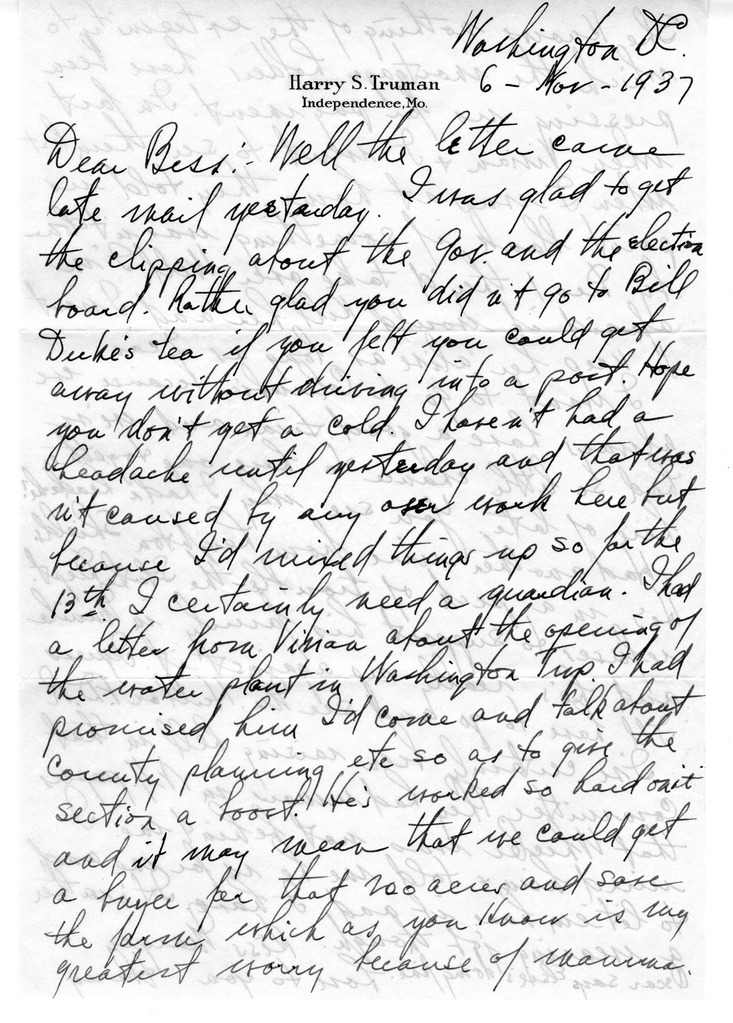 Washington DC.
6 - Nov - 1937
Harry S. Truman
Independence, Mo.
Dear Bess:- Well the letter came
late mail yestarday. I was glad to get
the clipping about the Gov. and the election
board. Rather glad you did n't go to Bill
Duke's tea if you felt you could get
away without driving into a post. Hope
you don't get a cold. I haven't had a
headache until yesterday and that was
n't caused by any over work here but
because I'd mixed things up so for the
13th. I certainly need a guardian. I had
a letter from Vivian about the opening of
the water plant in Washington Twp. I had
promised him I'd come and talk about
county planning etc so as to give the
section a boost. He's worked so hard on it
and it may mean that we could get
a buyer for that 200 acres and save
the farm which as you know is my
greatest worry because of mamma.